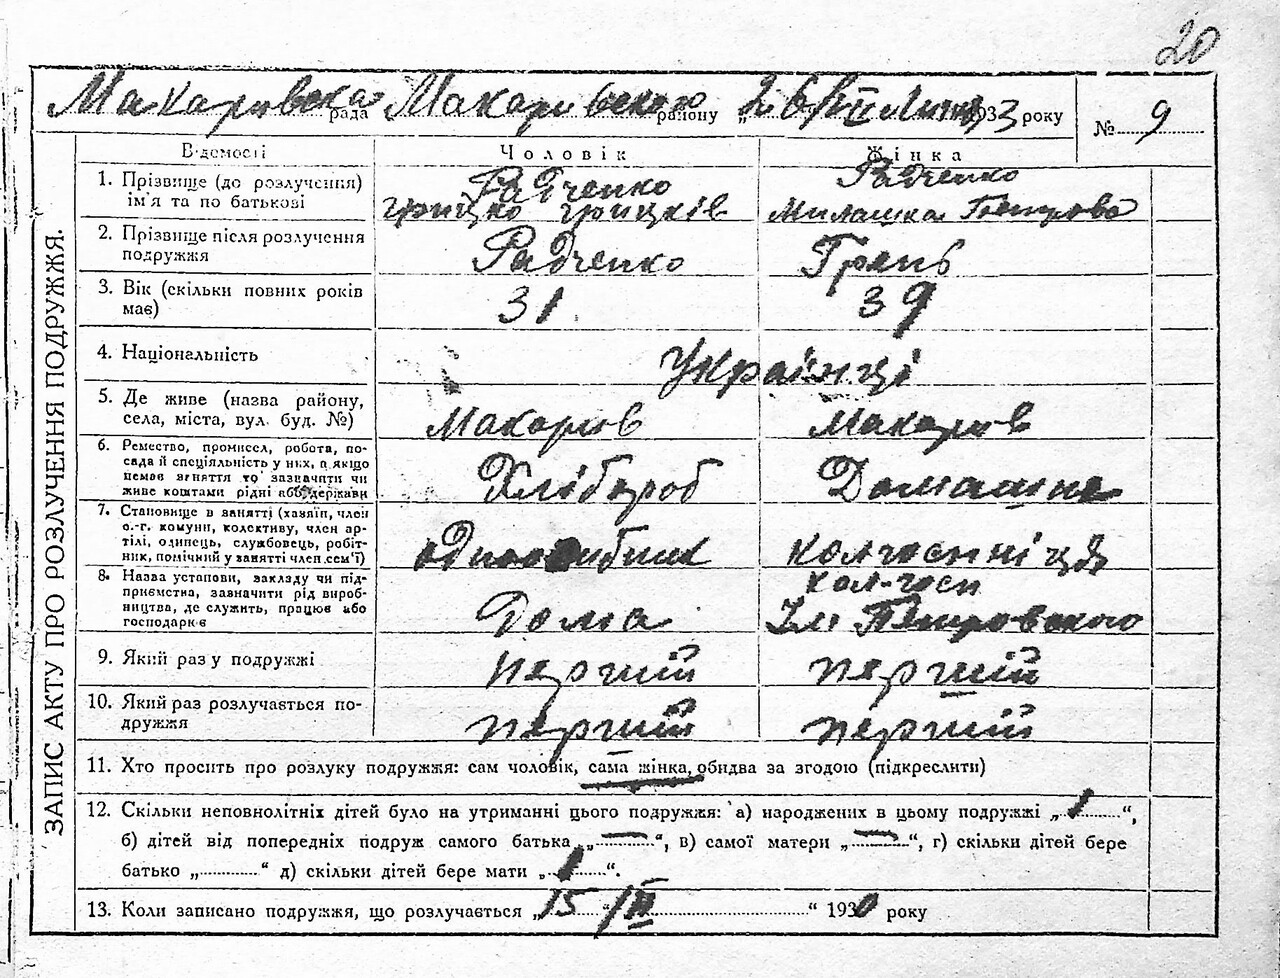 20
Макаровска рада Макарівського району „26/VII Липня 1933 року
№ 9
Відомості Чоловік Жінка
1. Прізвище (до розлучення) Радченко Радченко
ім'я та по батькові Грицко Грицків Милашка Петрова
2. Прізвище після розлучення
подружжя Радченко Грень
3. Вік (скільки повних років
має) 31 39
4. Національність Українці
5. Де живе (назва району,
села, міста, вул. буд. №) Макарів Макарів
6. Ремество, промисел, робота, по-
сада й спеціяльність у них, а якщо
немає заняття то зазначати чи
живе коштами рідні або держави Хлібороб Домашне
7. Становище в занятті (хазяїн, член
с.-г. комуни, колективу, член ар-
тілі, одинець, службовець, робіт-
ник, помічний у занятті член сем'ї) колгоспніця
8. Назва установи, закладу чи під- кол-госп
приємства, зазначити рід вироб-
ництва, де служить, працює або
господарює Дома Ім Петровского
9. Який раз у подружжі перший перший
10. Який раз розлучається по-
дружжя перший перший
11. Хто просить про розлуку подружжя: сам чоловік, сама жінка, обидва за згодою (підкреслити)
12. Скільки неповнолітніх дітей було на утриманні цього подружжя: а) народжених в цьому подружжі „1“,
б) дітей від попередніх подруж самого батька „—“, в) самої матери „—“, г) скільки дітей бере
батько „......“ д) скільки дітей бере мати „1“.
13. Коли записано подружжя, що розлучається „15“ /III “ 1930 року
ЗАПИС АКТУ ПРО РОЗЛУЧЕННЯ ПОДРУЖЖЯ.